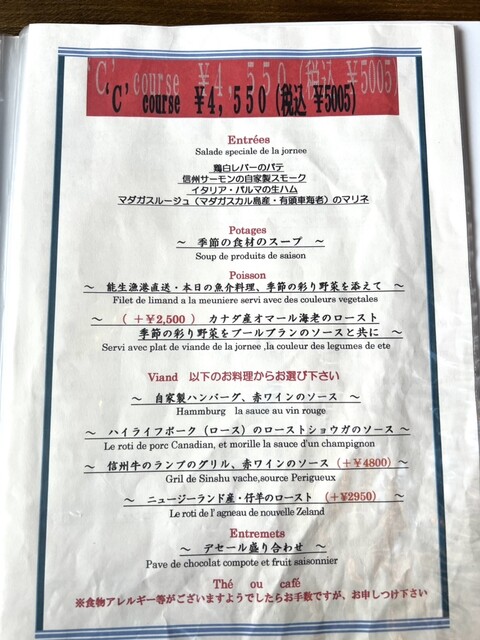 'C' course ¥4,550 (税込 ¥5005)
Entrées
Salade speciale de la jornee
鶏白レバーのパテ
信州サーモンの自家製スモーク
イタリア・パルマの生ハム
マダガスルージュ（マダガスカル島産・有頭車海老）のマリネ
Potages
～ 季節の食材のスープ ～
Soup de produits de saison
Poisson
～ 能生漁港直送・本日の魚介料理、季節の彩り野菜を添えて ～
Filet de limand a la meuniere servi avec des couleurs vegetales
～ （＋¥2,500） カナダ産オマール海老のロースト
季節の彩り野菜をブールブランのソースと共に ～
Servi avec plat de viande de la jornee ,la couleur des legumes de ete
Viand 以下のお料理からお選び下さい
～ 自家製ハンバーグ、赤ワインのソース ～
Hammburg la sauce au vin rouge
～ ハイライフポーク（ロース）のローストショウガのソース ～
Le roti de porc Canadian, et morille la sauce d'un champignon
～ 信州牛のランプのグリル、赤ワインのソース（＋¥4800）～
Gril de Sinshu vache,source Perigueux
～ ニュージーランド産・仔羊のロースト （＋¥2950） ～
Le roti de l' agneau de nouvelle Zeland
Entremets
～ デセール盛り合わせ ～
Pave de chocolat compote et fruit saisonnier
Thé ou café
※食物アレルギー等がございますようでしたらお手数ですが、お申しつけ下さい